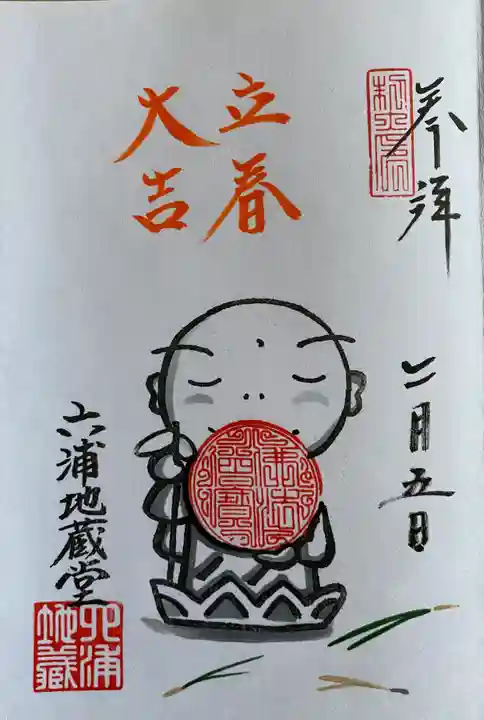 奉拝
二月五日
立春
大吉
佛法
僧寳
六浦地蔵堂
六浦
地蔵